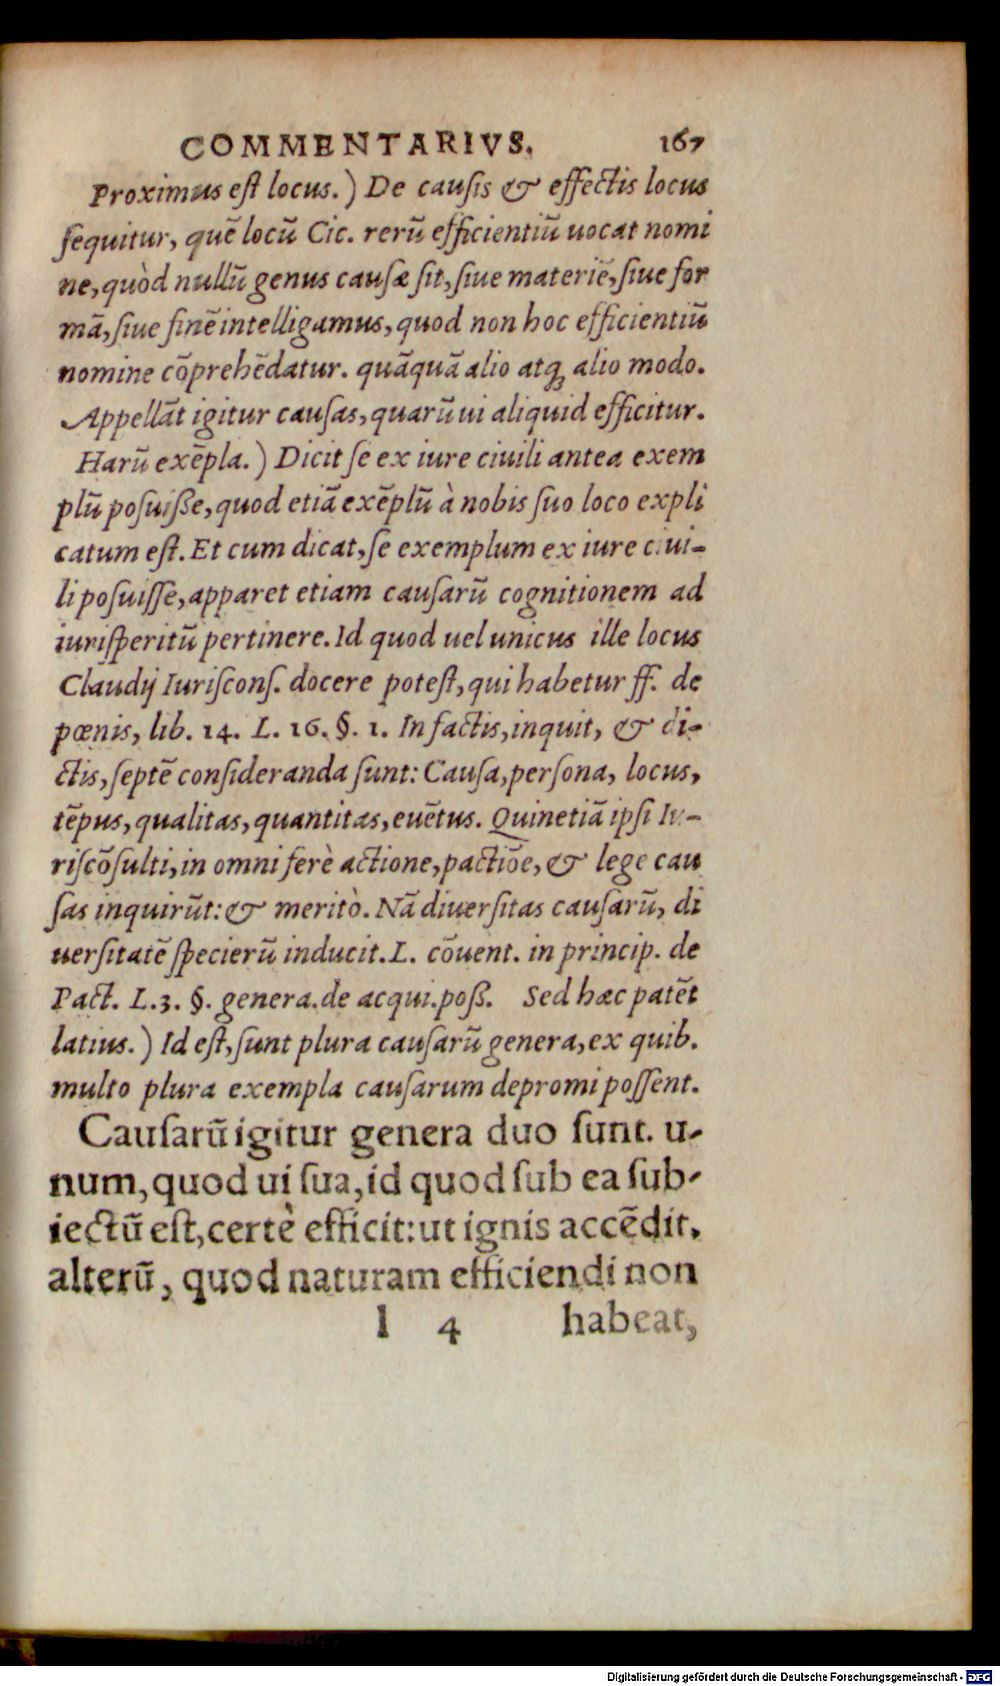 COMMENTARIVS. 167
Proximus eſt locus.) De cauſis & effectis locus
ſequitur, quē locū Cic. rerū efficientiū uocat nomi
ne, quòd nullū genus cauſæ ſit, ſiue materiē, ſiue for
mā, ſiue finē intelligamus, quod non hoc efficientiū
nomine cōprehēdatur. quāquā alio atqꝫ alio modo.
Appellāt igitur cauſas, quarū ui aliquid efficitur.
Harū exēpla.) Dicit ſe ex iure ciuili antea exem
plū poſuiße, quod etiā exēplū à nobis ſuo loco expli
catum eſt. Et cum dicat, ſe exemplum ex iure ciui-
li poſuiſſe, apparet etiam cauſarū cognitionem ad
iuriſperitū pertinere. Id quod uel unicus ille locus
Claudij Iuriſconſ. docere poteſt, qui habetur ff. de
pœnis, lib. 14. L. 16. §. 1. In factis, inquit, & di-
ctis, ſeptē conſideranda ſunt: Cauſa, perſona, locus,
tēpus, qualitas, quantitas, euētus. Quinetiā ipſi Iu-
riſcōſulti, in omni ferè actione, pactiōe, & lege cau
ſas inquirūt: & meritò. Nā diuerſitas cauſarū, di
uerſitatē ſpecierū inducit. L. cōuent. in princip. de
Pact. L. 3. §. genera. de acqui. poß. Sed hæc patēt
latius.) Id eſt, ſunt plura cauſarū genera, ex quib.
multo plura exempla cauſarum depromi poſſent.
Cauſarū igitur genera duo ſunt. u-
num, quod ui ſua, id quod ſub ea ſub-
iectū eſt, certè efficit: ut ignis accēdit.
alterū, quod naturam efficiendi non
l 4 habeat,
Digitalisierung gefördert durch die Deutsche Forschungsgemeinschaft - DFG